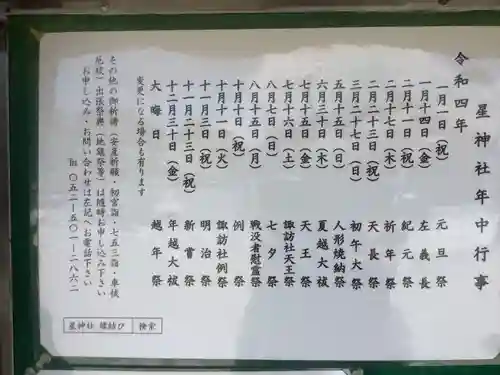 星神社年中行事
令和四年
一月一日（祝） 元旦祭
一月十四日（金） 左義長
二月十一日（祝） 紀元祭
二月十七日（木） 祈年祭
二月二十三日（祝） 天長祭
三月二十七日（日） 初午大祭
五月十五日（日） 人形焼納祭
六月三十日（木） 夏越大祓
七月十五日（金） 天王祭
七月十六日（土） 諏訪社天王祭
八月七日（日） 七夕祭
八月十五日（月） 戦没者慰霊祭
十月十日（祝） 例祭
十月十一日（火） 諏訪社例祭
十一月三日（祝） 明治祭
十一月二十三日（祝） 新嘗祭
十二月三十日（金） 年越大祓
大晦日 越年祭
変更になる場合も有ります
その他の御祈祷（安産祈願・初宮詣・七五三詣・車祓
厄祓）出張祭典（地鎮祭等）は随時お申し込み下さい
お申し込み・お問い合わせは左記へお電話下さい
℡ 〇五二―五〇一―二八六二
星神社 縁結び 検索